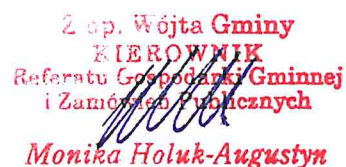 Z up. Wójta Gminy
KIEROWNIK
Referatu Gospodarki Gminnej
i Zamówień Publicznych
Monika Holuk-Augustyn